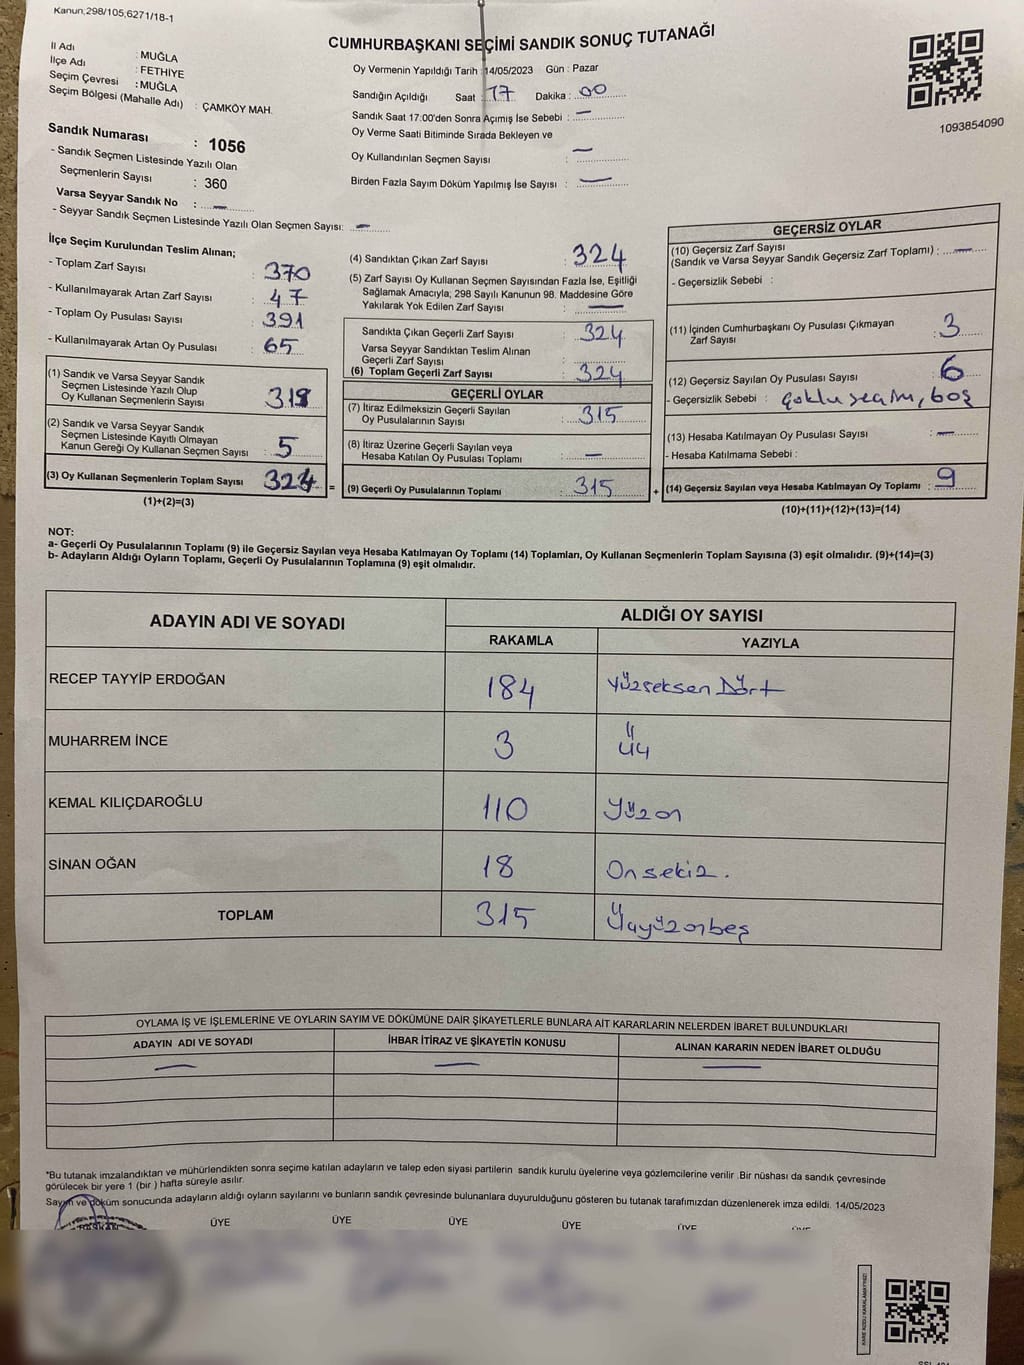 Kanun;298/105,6271/18-1
CUMHURBAŞKANI SEÇİMİ SANDIK SONUÇ TUTANAĞI
İl Adı : MUĞLA
İlçe Adı : FETHİYE
Seçim Çevresi : MUĞLA
Seçim Bölgesi (Mahalle Adı) : ÇAMKÖY MAH.
Sandık Numarası : 1056
- Sandık Seçmen Listesinde Yazılı Olan
Seçmenlerin Sayısı : 360
Varsa Seyyar Sandık No : —
- Seyyar Sandık Seçmen Listesinde Yazılı Olan Seçmen Sayısı: —
Oy Vermenin Yapıldığı Tarih : 14/05/2023 Gün : Pazar
Sandığın Açıldığı Saat : 17 Dakika : 00
Sandık Saat 17:00'den Sonra Açımış İse Sebebi : —
Oy Verme Saati Bitiminde Sırada Bekleyen ve
Oy Kullandırılan Seçmen Sayısı : —
Birden Fazla Sayım Döküm Yapılmış İse Sayısı : —
1093854090
İlçe Seçim Kurulundan Teslim Alınan;
- Toplam Zarf Sayısı : 370
- Kullanılmayarak Artan Zarf Sayısı : 47
- Toplam Oy Pusulası Sayısı : 391
- Kullanılmayarak Artan Oy Pusulası : 65
(1) Sandık ve Varsa Seyyar Sandık
Seçmen Listesinde Yazılı Olup
Oy Kullanan Seçmenlerin Sayısı : 319
(2) Sandık ve Varsa Seyyar Sandık
Seçmen Listesinde Kayıtlı Olmayan
Kanun Gereği Oy Kullanan Seçmen Sayısı : 5
(3) Oy Kullanan Seçmenlerin Toplam Sayısı 324 =
(1)+(2)=(3)
(4) Sandıktan Çıkan Zarf Sayısı : 324
(5) Zarf Sayısı Oy Kullanan Seçmen Sayısından Fazla İse, Eşitliği
Sağlamak Amacıyla; 298 Sayılı Kanunun 98. Maddesine Göre
Yakılarak Yok Edilen Zarf Sayısı : —
Sandıkta Çıkan Geçerli Zarf Sayısı : 324
Varsa Seyyar Sandıktan Teslim Alınan
Geçerli Zarf Sayısı :
(6) Toplam Geçerli Zarf Sayısı : 324
GEÇERLİ OYLAR
(7) İtiraz Edilmeksizin Geçerli Sayılan
Oy Pusulalarının Sayısı : 315
(8) İtiraz Üzerine Geçerli Sayılan veya
Hesaba Katılan Oy Pusulası Toplamı : —
(9) Geçerli Oy Pusulalarının Toplamı : 315 +
GEÇERSİZ OYLAR
(10) Geçersiz Zarf Sayısı
(Sandık ve Varsa Seyyar Sandık Geçersiz Zarf Toplamı) : —
- Geçersizlik Sebebi :
(11) İçinden Cumhurbaşkanı Oy Pusulası Çıkmayan
Zarf Sayısı : 3
(12) Geçersiz Sayılan Oy Pusulası Sayısı : 6
- Geçersizlik Sebebi : çoklu seçim, boş
(13) Hesaba Katılmayan Oy Pusulası Sayısı : —
- Hesaba Katılmama Sebebi :
(14) Geçersiz Sayılan veya Hesaba Katılmayan Oy Toplamı : 9
(10)+(11)+(12)+(13)=(14)
NOT:
a- Geçerli Oy Pusulalarının Toplamı (9) ile Geçersiz Sayılan veya Hesaba Katılmayan Oy Toplamı (14) Toplamları, Oy Kullanan Seçmenlerin Toplam Sayısına (3) eşit olmalıdır. (9)+(14)=(3)
b- Adayların Aldığı Oyların Toplamı, Geçerli Oy Pusulalarının Toplamına (9) eşit olmalıdır.
ADAYIN ADI VE SOYADI ALDIĞI OY SAYISI
RAKAMLA YAZIYLA
RECEP TAYYİP ERDOĞAN 184 Yüzseksen Dört
MUHARREM İNCE 3 Üç
KEMAL KILIÇDAROĞLU 110 Yüzon
SİNAN OĞAN 18 Onsekiz.
TOPLAM 315 Üçyüzonbeş
OYLAMA İŞ VE İŞLEMLERİNE VE OYLARIN SAYIM VE DÖKÜMÜNE DAİR ŞİKAYETLERLE BUNLARA AİT KARARLARIN NELERDEN İBARET BULUNDUKLARI
ADAYIN ADI VE SOYADI İHBAR İTİRAZ VE ŞİKAYETİN KONUSU ALINAN KARARIN NEDEN İBARET OLDUĞU
— — —
*Bu tutanak imzalandıktan ve mühürlendikten sonra seçime katılan adayların ve talep eden siyasi partilerin sandık kurulu üyelerine veya gözlemcilerine verilir .Bir nüshası da sandık çevresinde
görülecek bir yere 1 (bir ) hafta süreyle asılır.
Sayım ve döküm sonucunda adayların aldığı oyların sayılarını ve bunların sandık çevresinde bulunanlara duyurulduğunu gösteren bu tutanak tarafımızdan düzenlenerek imza edildi. 14/05/2023
BAŞKAN ÜYE ÜYE ÜYE ÜYE ÜYE ÜYE
KARE KODU KARALAMAYINIZ!